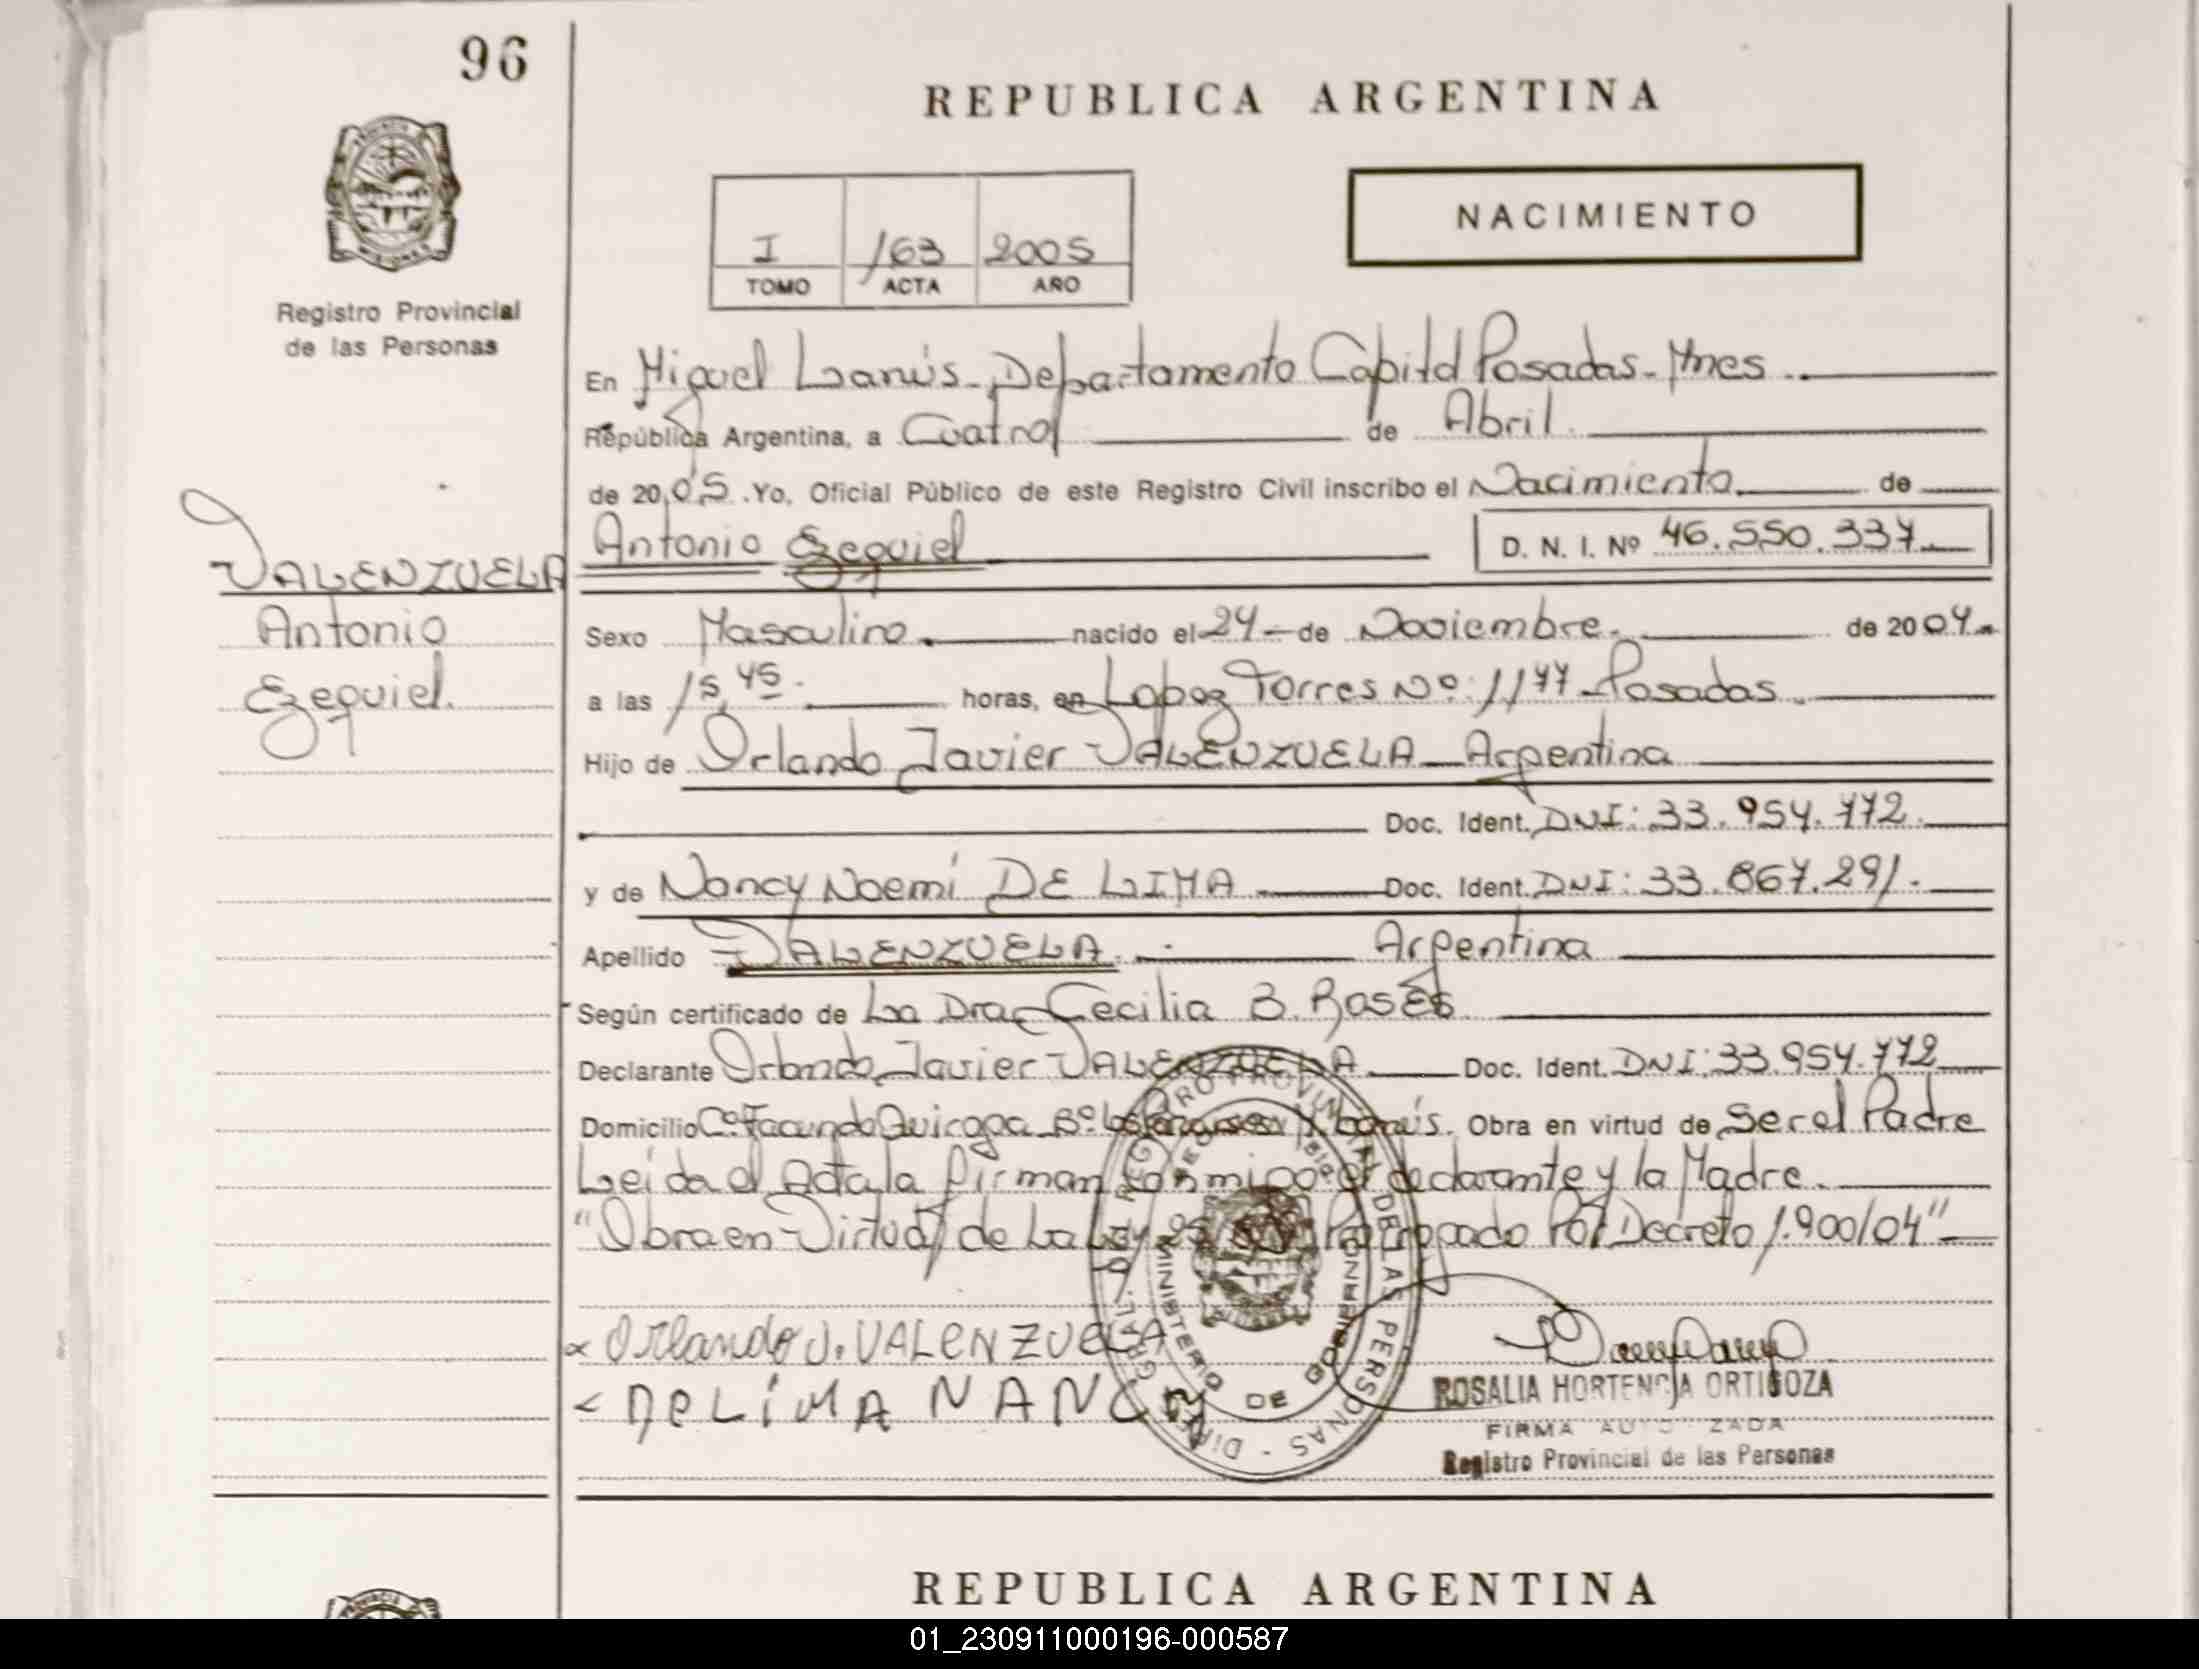 96
REPUBLICA ARGENTINA
NACIMIENTO
I 163 2005
TOMO ACTA AÑO
Registro Provincial
de las Personas
En Miguel Lanús - Departamento Capital Posadas - Mnes
República Argentina, a Cuatro de Abril
de 2005. Yo, Oficial Público de este Registro Civil inscribo el Nacimiento de
Antonio Ezequiel D. N. I. Nº 46.550.337
VALENZUELA
Antonio
Ezequiel.
Sexo Masculino. nacido el 24 de Noviembre. de 2004
a las 15,45. horas, en Lopez Torres Nº: 1177 - Posadas.
Hijo de Orlando Javier VALENZUELA - Argentina
Doc. Ident. DNI: 33.954.772.
y de Nancy Noemí DE LIMA Doc. Ident. DNI: 33.867.291.
Apellido VALENZUELA. Argentina
Según certificado de La Dra Cecilia B. Rosés
Declarante Orlando Javier VALENZUELA Doc. Ident. DNI: 33.954.772
Domicilio Cº. Facundo Quiroga Bº Los M. Lanús. Obra en virtud de Ser el Padre
Leida el Acta la firman conmigo el declarante y la Madre.
"Obra en Virtud de La Ley Prorrogado Por Decreto 1.900/04"
Orlando J. VALENZUELA
DELIMA NANCY
DIREC. GRAL. DEL REGISTRO PROVINCIAL DE LAS PERSONAS
MINISTERIO DE GOBIERNO
ROSALIA HORTENCIA ORTIGOZA
FIRMA AUTORIZADA
Registro Provincial de las Personas
REPUBLICA ARGENTINA
01_230911000196-000587